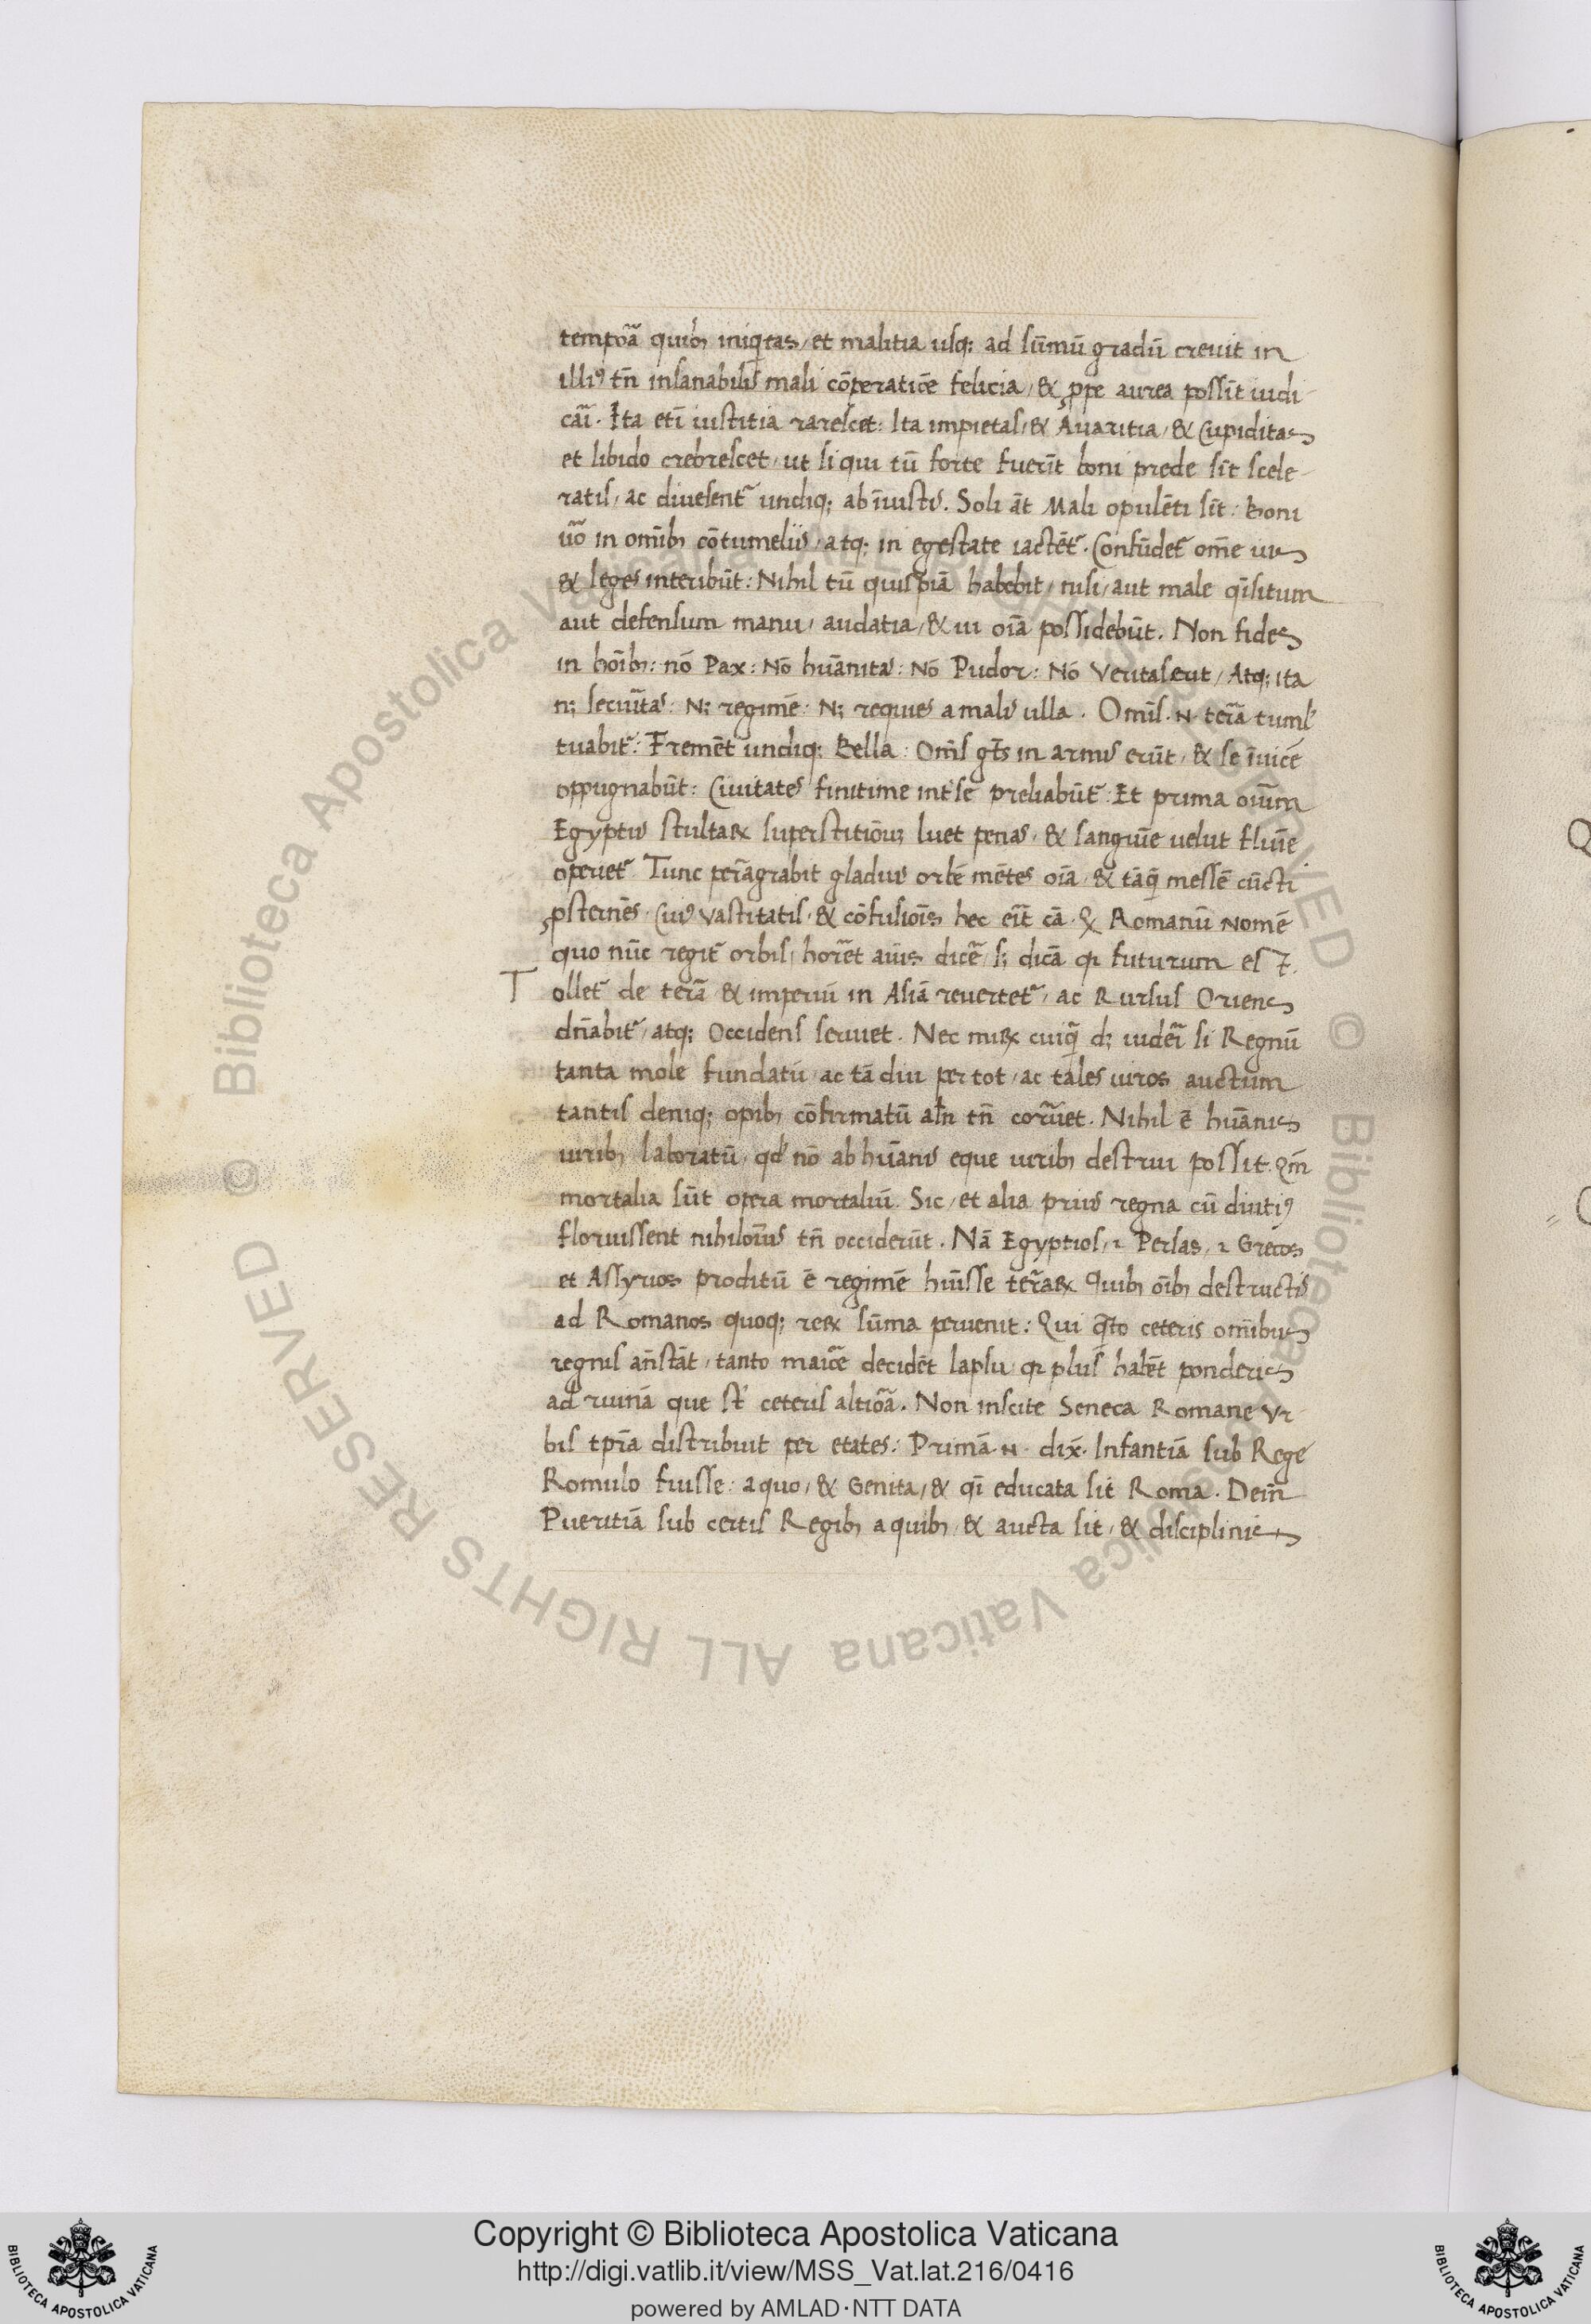 tempoã quib iniqtas, et malitia usq; ad sūmū gradū crevit in
illi⁹ tn̄ insanabilis mali cōperatiōe felicia, & ꝓpe aurea possīt iudi-
cãi. Ita etī iustitia rarescet: Ita impietas, & Avaritia, & Cupiditas
et libido crebrescet, ut si qui tū forte fuerīt boni prede sīt scele-
ratis, ac divesent᷑ undiq; ab īiustis. Soli āt Mali opulēti sīt: Boni
uõ in omīb cōtumeliis, atq; in egestate iactēt᷑. Confūdet᷑ om̄e ius
& leges interibūt: Nihil tū quispiā habebit, nisi, aut male q̄situm
aut defensum manu, audatia, & ui oīa possidebūt. Non fides
in hoīb: nō Pax: Nō hūanitas: Nō Pudor: Nō Veritas erit, Atq; ita
n; secuĩtas: N; regimē: N; requies a malis ulla. Omīs .N. teꝛ̃a tuml'
tuabit᷑: Fremēt undiq; Bella: Omīs gt̄s in armis erūt, & se īuicē
oppugnabūt: Civitates finitime int' se preliabūt᷑: Et prima oiūm
Egyptus stultaꝝ superstitionū; luet penas, & sanguīe velut flumīe
operiet᷑. Tunc per̃agrabit gladius orbē mētes oīa, & tāq̄ messē cūcti
ꝓsternēs. Cui⁹ vastitatis, & cōfusiōis hec eĩt cā. Q Romanū Nomē
quo nūc regit᷑ orbis, horr̃et aīus dicēr, s; dicā qꝛ futurum est.
Tollet᷑ de ter̃a & imperiū in Asiā revertet᷑, ac Rursus Oriens
dn̄abit᷑, atq; Occidens serviet. Nec miꝝ cuiq̄ d; uidēri si Regnū
tanta mole fundatū, ac tā diu per tot, ac tales viros auctum
tantis deniq; opib cōfirmatū aln̄ tn̄ corr̃uet. Nihil ē hūanis
virib laboratū, qd' nō ab hūanis eque virib destrui possit. Qm̄
mortalia sūt opera mortaliū. Sic, et alia prius regna cū diuti⁹
floruissent nihilomĩus tn̄ occiderūt. Nā Egyptios, ⁊ Persas, ⁊ Grecos
et Assyrios proditū ē regimē huīsse ter̃aꝝ Quib oīb destructis
ad Romanos quoq; reꝝ sūma pervenit: Qui q̃to ceteris omnibus
regnis an̄stāt, tanto maioĩe decidēt lapsu, qꝛ plus habēt ponderis
ad ruinā que st̄ ceteris altioã. Non inscite Seneca Romane Vr-
bis tp̃ia distribuit per etates: Primā .N. dix̄. Infantiā sub Rege
Romulo fuisse: a quo, & Genita, & q̄i educata sit Roma. Dein̄
Pueritiā sub ceteris Regib a quib, & aucta sit, & disciplinis
Copyright © Biblioteca Apostolica Vaticana
http://digi.vatlib.it/view/MSS_Vat.lat.216/0416
powered by AMLAD·NTT DATA